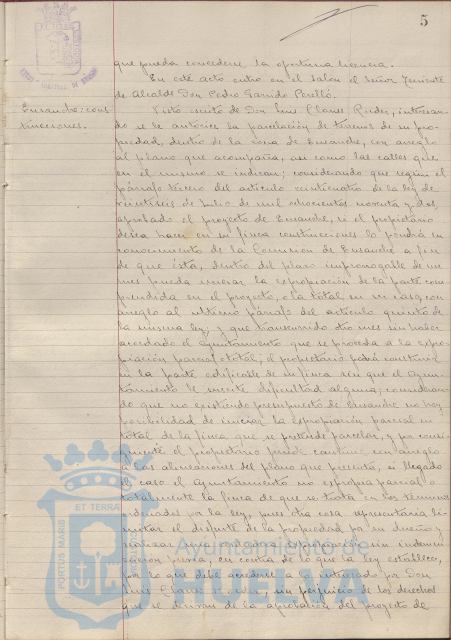 5
que pueda concederse la oportuna licencia.
En este acto entra en el salón el Señor Teniente
de Alcalde Don Pedro Garrido Perelló.
Ensanche: cons
trucciones.
Visto escrito de Don Luis Claros interesan-
do se le autorice la parcelación de terrenos de su pro-
piedad, dentro de la zona de Ensanche, con arreglo
al plano que acompaña, así como las calles que
en el mismo se indican; considerando que según el
párrafo tercero del artículo veinticuatro de la ley de
veintiseis de Julio de mil ochocientos noventa y dos,
aprobado el proyecto de Ensanche, si el propietario
desea hacer en su finca construcciones lo pondrá en
conocimiento de la Comision de Ensanche a fin
de que ésta, dentro del plazo improrrogable de un
mes pueda iniciar la expropiación de la parte com-
prendida en el proyecto, o la total en su caso, con
arreglo al último párrafo del artículo quinto de
la misma ley; y que transcurrido dho mes sin haber
acordado el ayuntamiento que se proceda a la expro-
piación parcial o total, el propietario podrá construir
en la parte edificable de su finca sin que el ayun-
tamiento le suscite dificultad alguna; consideran-
do que no existiendo presupuesto de Ensanche no hay
posibilidad de iniciar la expropiación parcial ni
total de la finca que se pretende parcelar, y por consi-
guiente el propietario puede construir con arreglo
a las alineaciones del plano que presenta, si llegado
el caso el Ayuntamiento no expropia parcial o
totalmente la finca de que se trata en los términos
ordenados por la ley, pues otra cosa representaría li-
mitar el disfrute de la propiedad por su dueño y
realizar una expropiación sin indemni-
zación previa, en contra de lo que la ley establece,
por lo que debe accederse a lo interesado por Don
Luis Claros sin perjuicio de los derechos
que se deriven de la aprobación del proyecto de
PORTUS MARIS
ET TERRAE
CUSTODIA
Ayuntamiento de
HUELVA